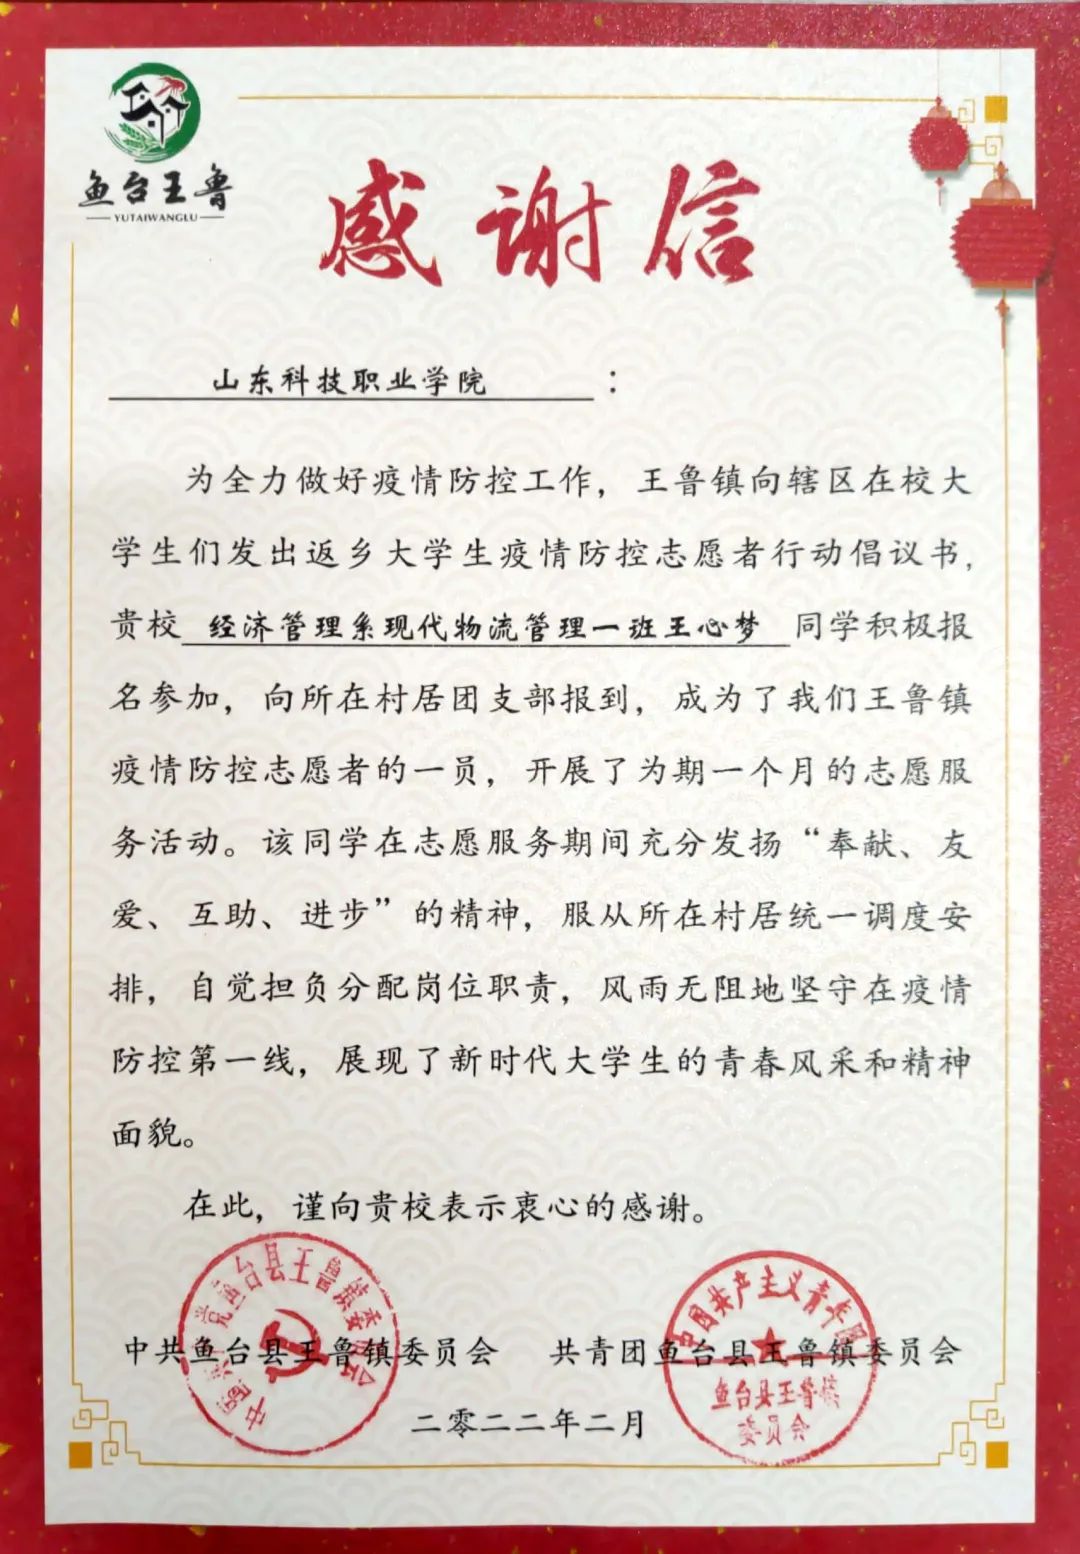 鱼台王鲁
YUTAIWANGLU
感谢信
山东科技职业学院：
为全力做好疫情防控工作，王鲁镇向辖区在校大
学生们发出返乡大学生疫情防控志愿者行动倡议书，
贵校 经济管理系现代物流管理一班王心梦 同学积极报
名参加，向所在村居团支部报到，成为了我们王鲁镇
疫情防控志愿者的一员，开展了为期一个月的志愿服
务活动。该同学在志愿服务期间充分发扬“奉献、友
爱、互助、进步”的精神，服从所在村居统一调度安
排，自觉担负分配岗位职责，风雨无阻地坚守在疫情
防控第一线，展现了新时代大学生的青春风采和精神
面貌。
在此，谨向贵校表示衷心的感谢。
中共鱼台县王鲁镇委员会 共青团鱼台县王鲁镇委员会
二零二二年二月
中国共产党鱼台县王鲁镇委员会
中国共产主义青年团
鱼台县王鲁镇
委员会